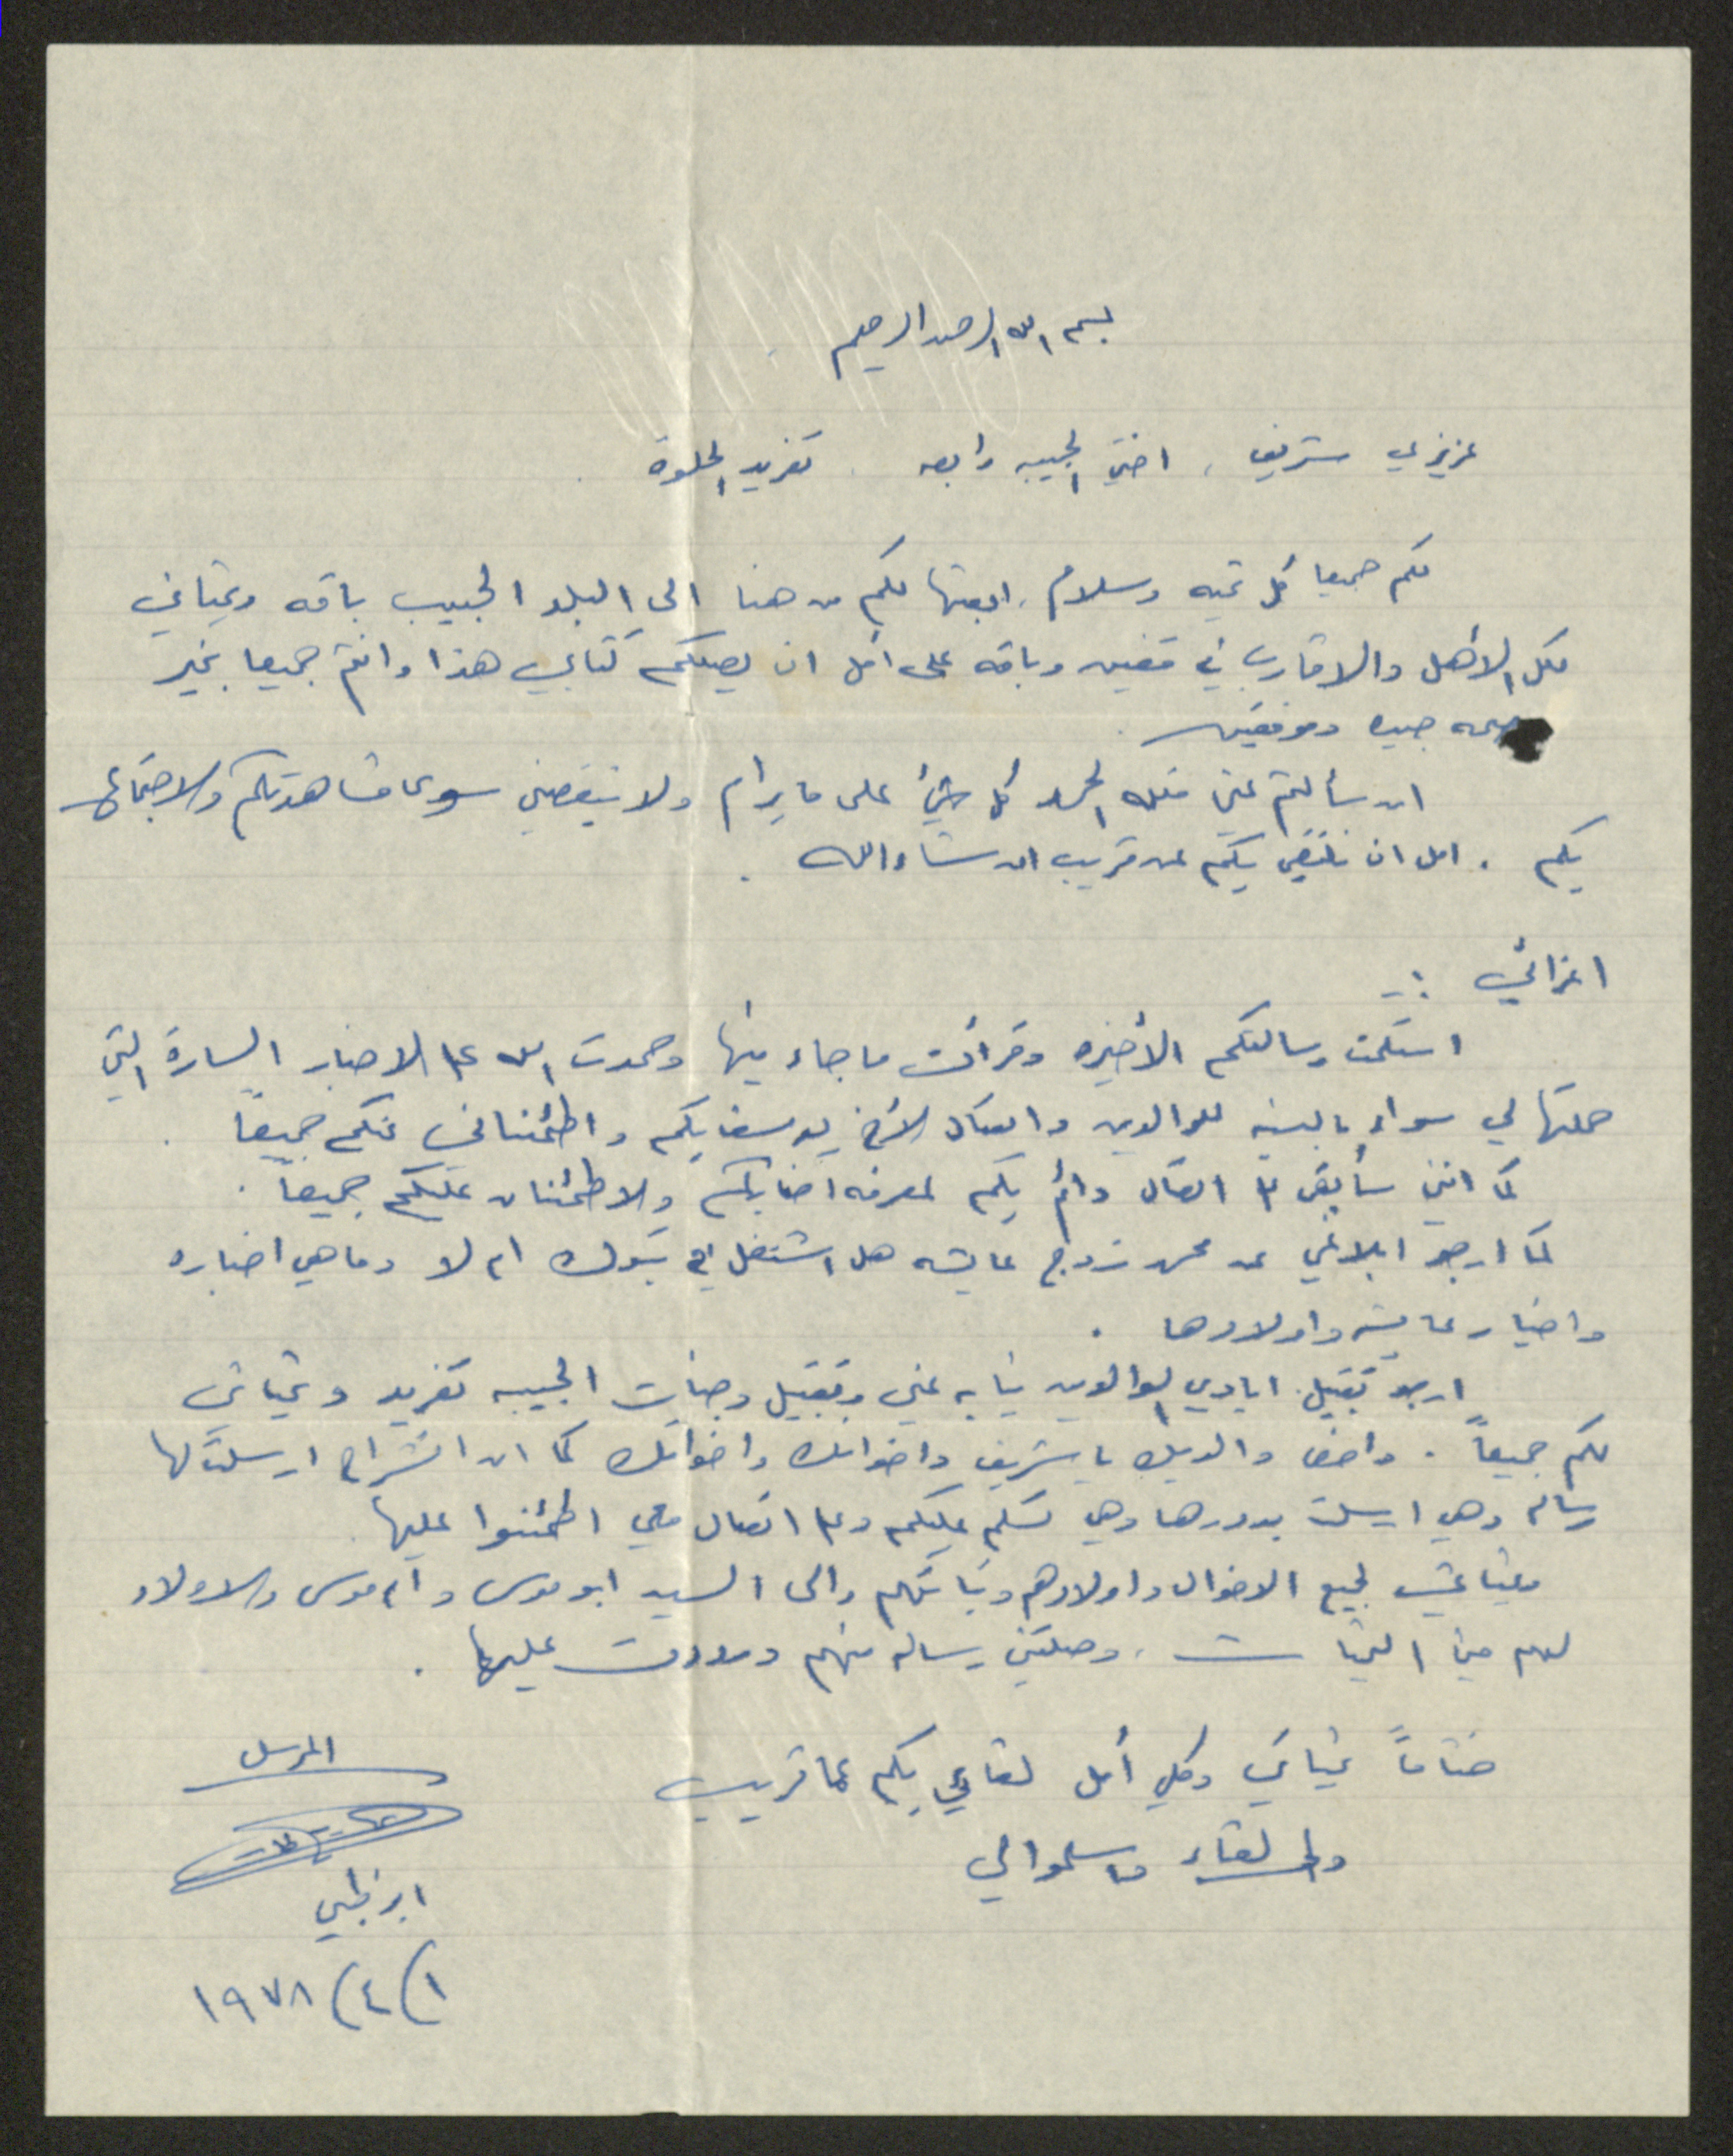 بسم الله الرحمن الرحيم
عزيزي شريف ، اختي الحبيبه رابعه . تغريد الحلوة .
لكم جميعا كل تحيه وسلام ، ابعثها لكم من هنا الى البلد الحبيب باقه وتحياتي
لكل الأهل والاقارب في قفين وباقه على أمل ان يصلكم كتابي هذا وانتم جميعا بخير
وصحه جيده وموفقين .
ان سألتم عني فلله الحمد كل شيئ على ما يرام ولا ينقصني سوى مشاهدتكم والاجتماع
بكم . امل ان نلتقي بكم عن قريب ان شاء الله .
اعزائي :-
استلمت رسالتكم الأخيره وقرأت ما جاء فيها وحمدت الله على الاخبار السارة التي
حملتها لي سواء بالنسبه للوالدين واتصال الأخ يوسف بكم واطمئناني عنكم جميعاً .
كما انني سأبقى على اتصال دائم بكم لمعرفه اخباركم والاطمئنان عليكم جميعاً .
كما ارجو ابلاغي عن محمد زوج عايشه هل اشتغل في ام لا وما هي اخباره
واخبار عايشه واولادها .
ارجو تقبيل ايادي الوالدين نيابه عني وتقبيل وجنات الحبيبه تغريد وتحياتي
لكم جميعاً . واخص والديك يا شريف واخوانك واخواتك كما ان انشراح ارسلت لها
رساله وهي ارسلت بدورها وهي تسلم عليكم وعلى اتصال معي اطمئنوا عليها .
وتحياتي لجميع الاخوال واولادهم وبناتهم والى السيد ابو موسى وام موسى والاولاد
لهم مني التحيات ، وصلتني رساله منهم ورددت عليها .
ختاماً تحياتي وكلي أمل لقائي بكم عما قريب
والى اللقاء واسلموا لي
المرسل
ابو ظبي
١/٤/١٩٧٨